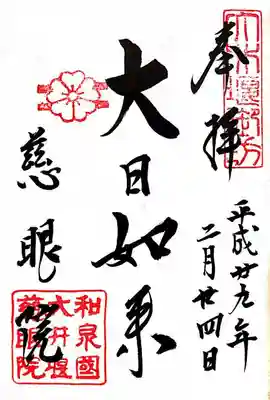 奉拝
平成廿九年
二月廿四日
大日如来
慈眼院
和泉國
大井堰
慈眼院